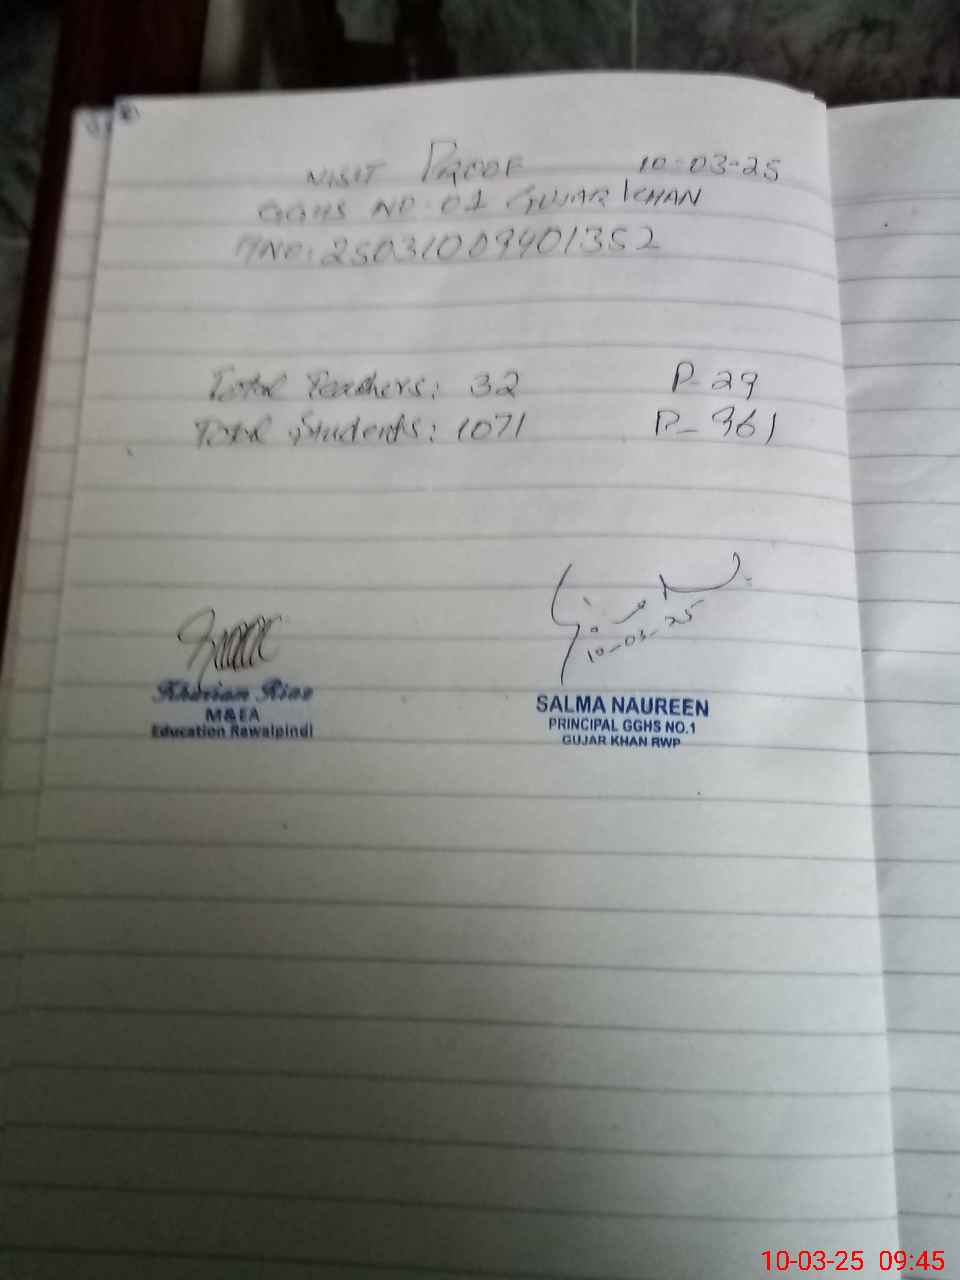 VISIT PROOF 10-03-25
GGHS NO-01 GUJAR KHAN
25031009401352
Total Teachers: 32 P-29
Total Students: 1071 P-961
10-03-25
Riaz
M&EA
Education Rawalpindi
SALMA NAUREEN
PRINCIPAL GGHS NO.1
GUJAR KHAN RWP
10-03-25 09:45